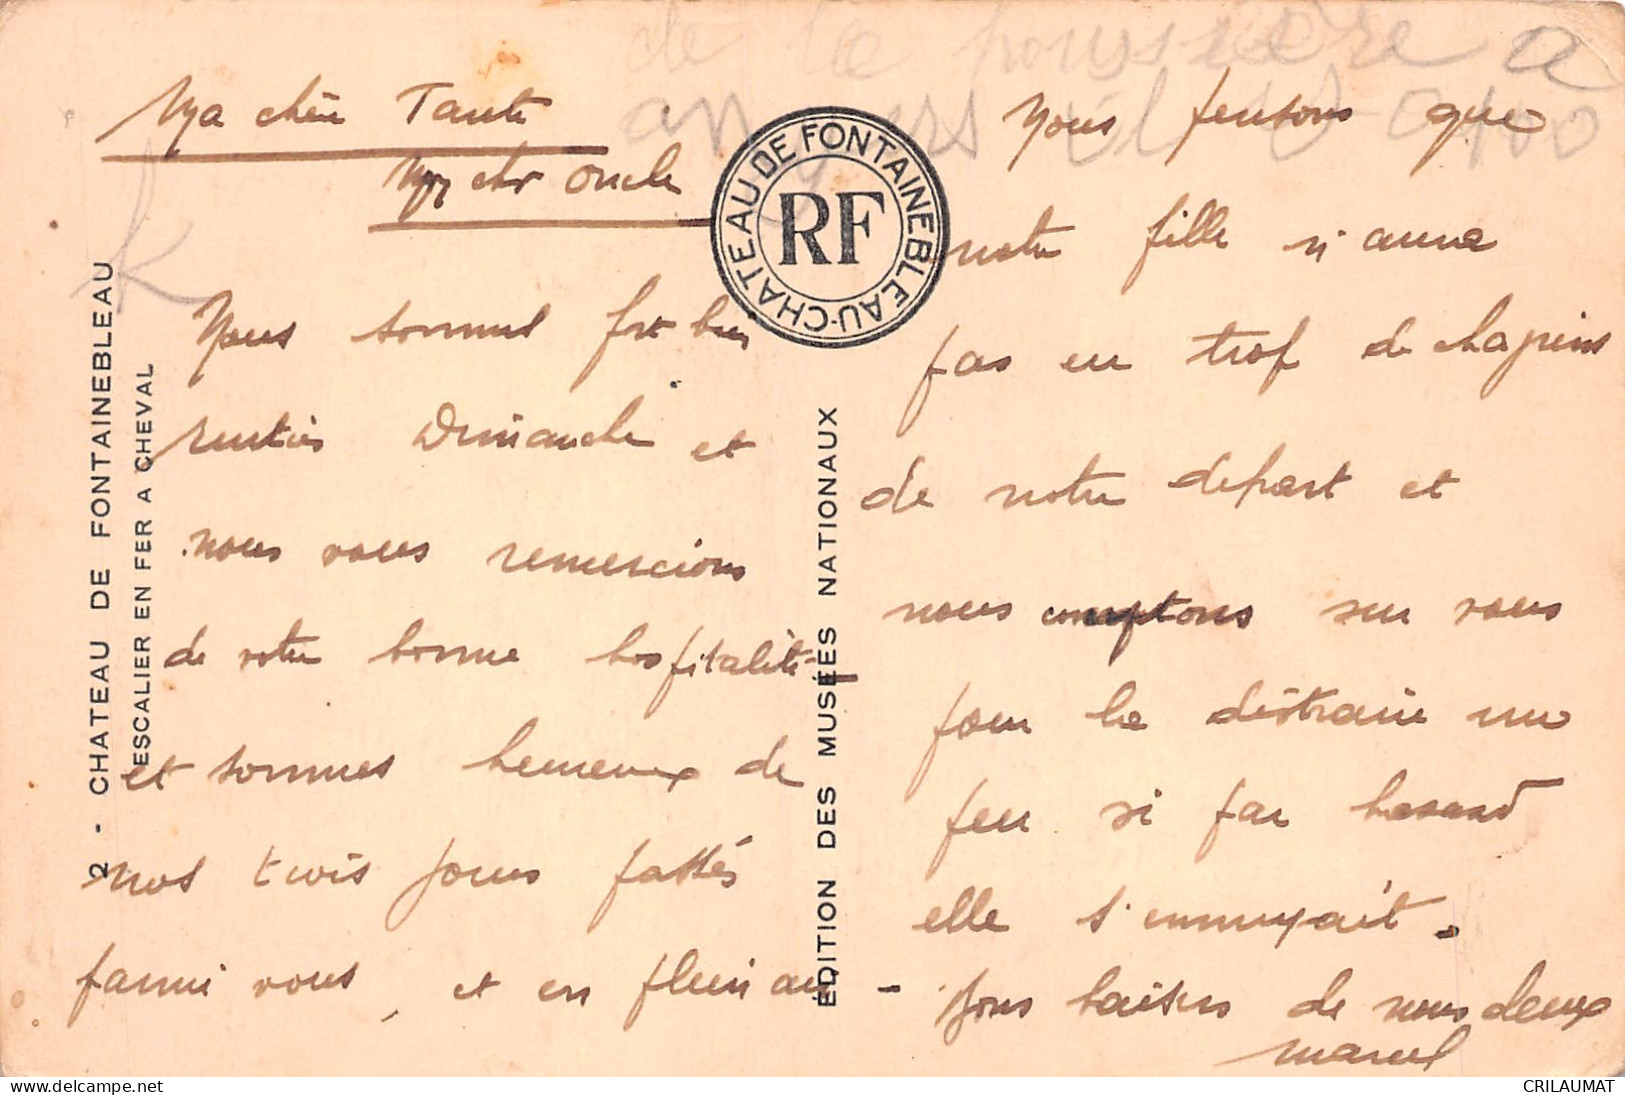 de la poussière a
Ma chère Tante
Mon cher Oncle
Nous sommes fort bien
rentrés Dimanche et
nous vous remercions
de votre bonne hospitalité
et sommes heureux de
nos trois jours passés
parmi vous, et en plein air -
Nous pensons que
notre fille n'aura
pas eu trop de chagrins
de notre depart et
nous comptons sur vous
pour la distraire un
peu si par hasard
elle s'ennuyait.
Bons baisers de nous deux
Marcel
CHATEAU DE FONTAINEBLEAU
RF
2 - CHATEAU DE FONTAINEBLEAU
ESCALIER EN FER A CHEVAL
ÉDITION DES MUSÉES NATIONAUX
CRILAUMAT